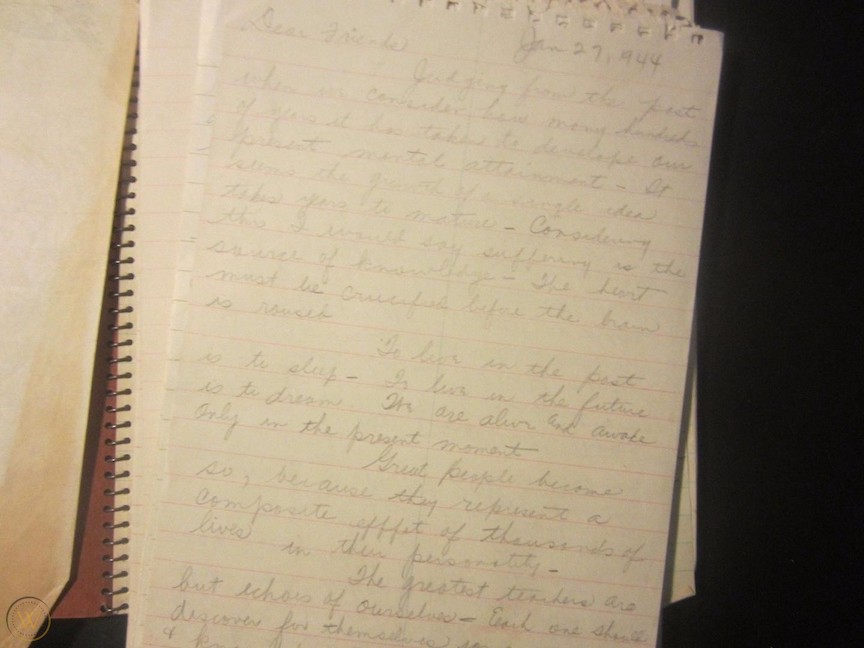 Dear Friends Jan 27, 1944
Judging from the past
when we consider how many hundreds
of years it has taken to develope our
present mental attainment - It
seems the growth of a single idea
takes years to mature - Considering
this I would say suffering is the
source of knowledge - The heart
must be crucified before the brain
is roused
To live in the past
is to sleep - To live in the future
is to dream We are alive and awake
Only in the present moment
Great people become
so, because they represent a
composite effect of thousands of
lives in their personality -
The greatest teachers are
but echoes of ourselves - Each one should
discover for themselves